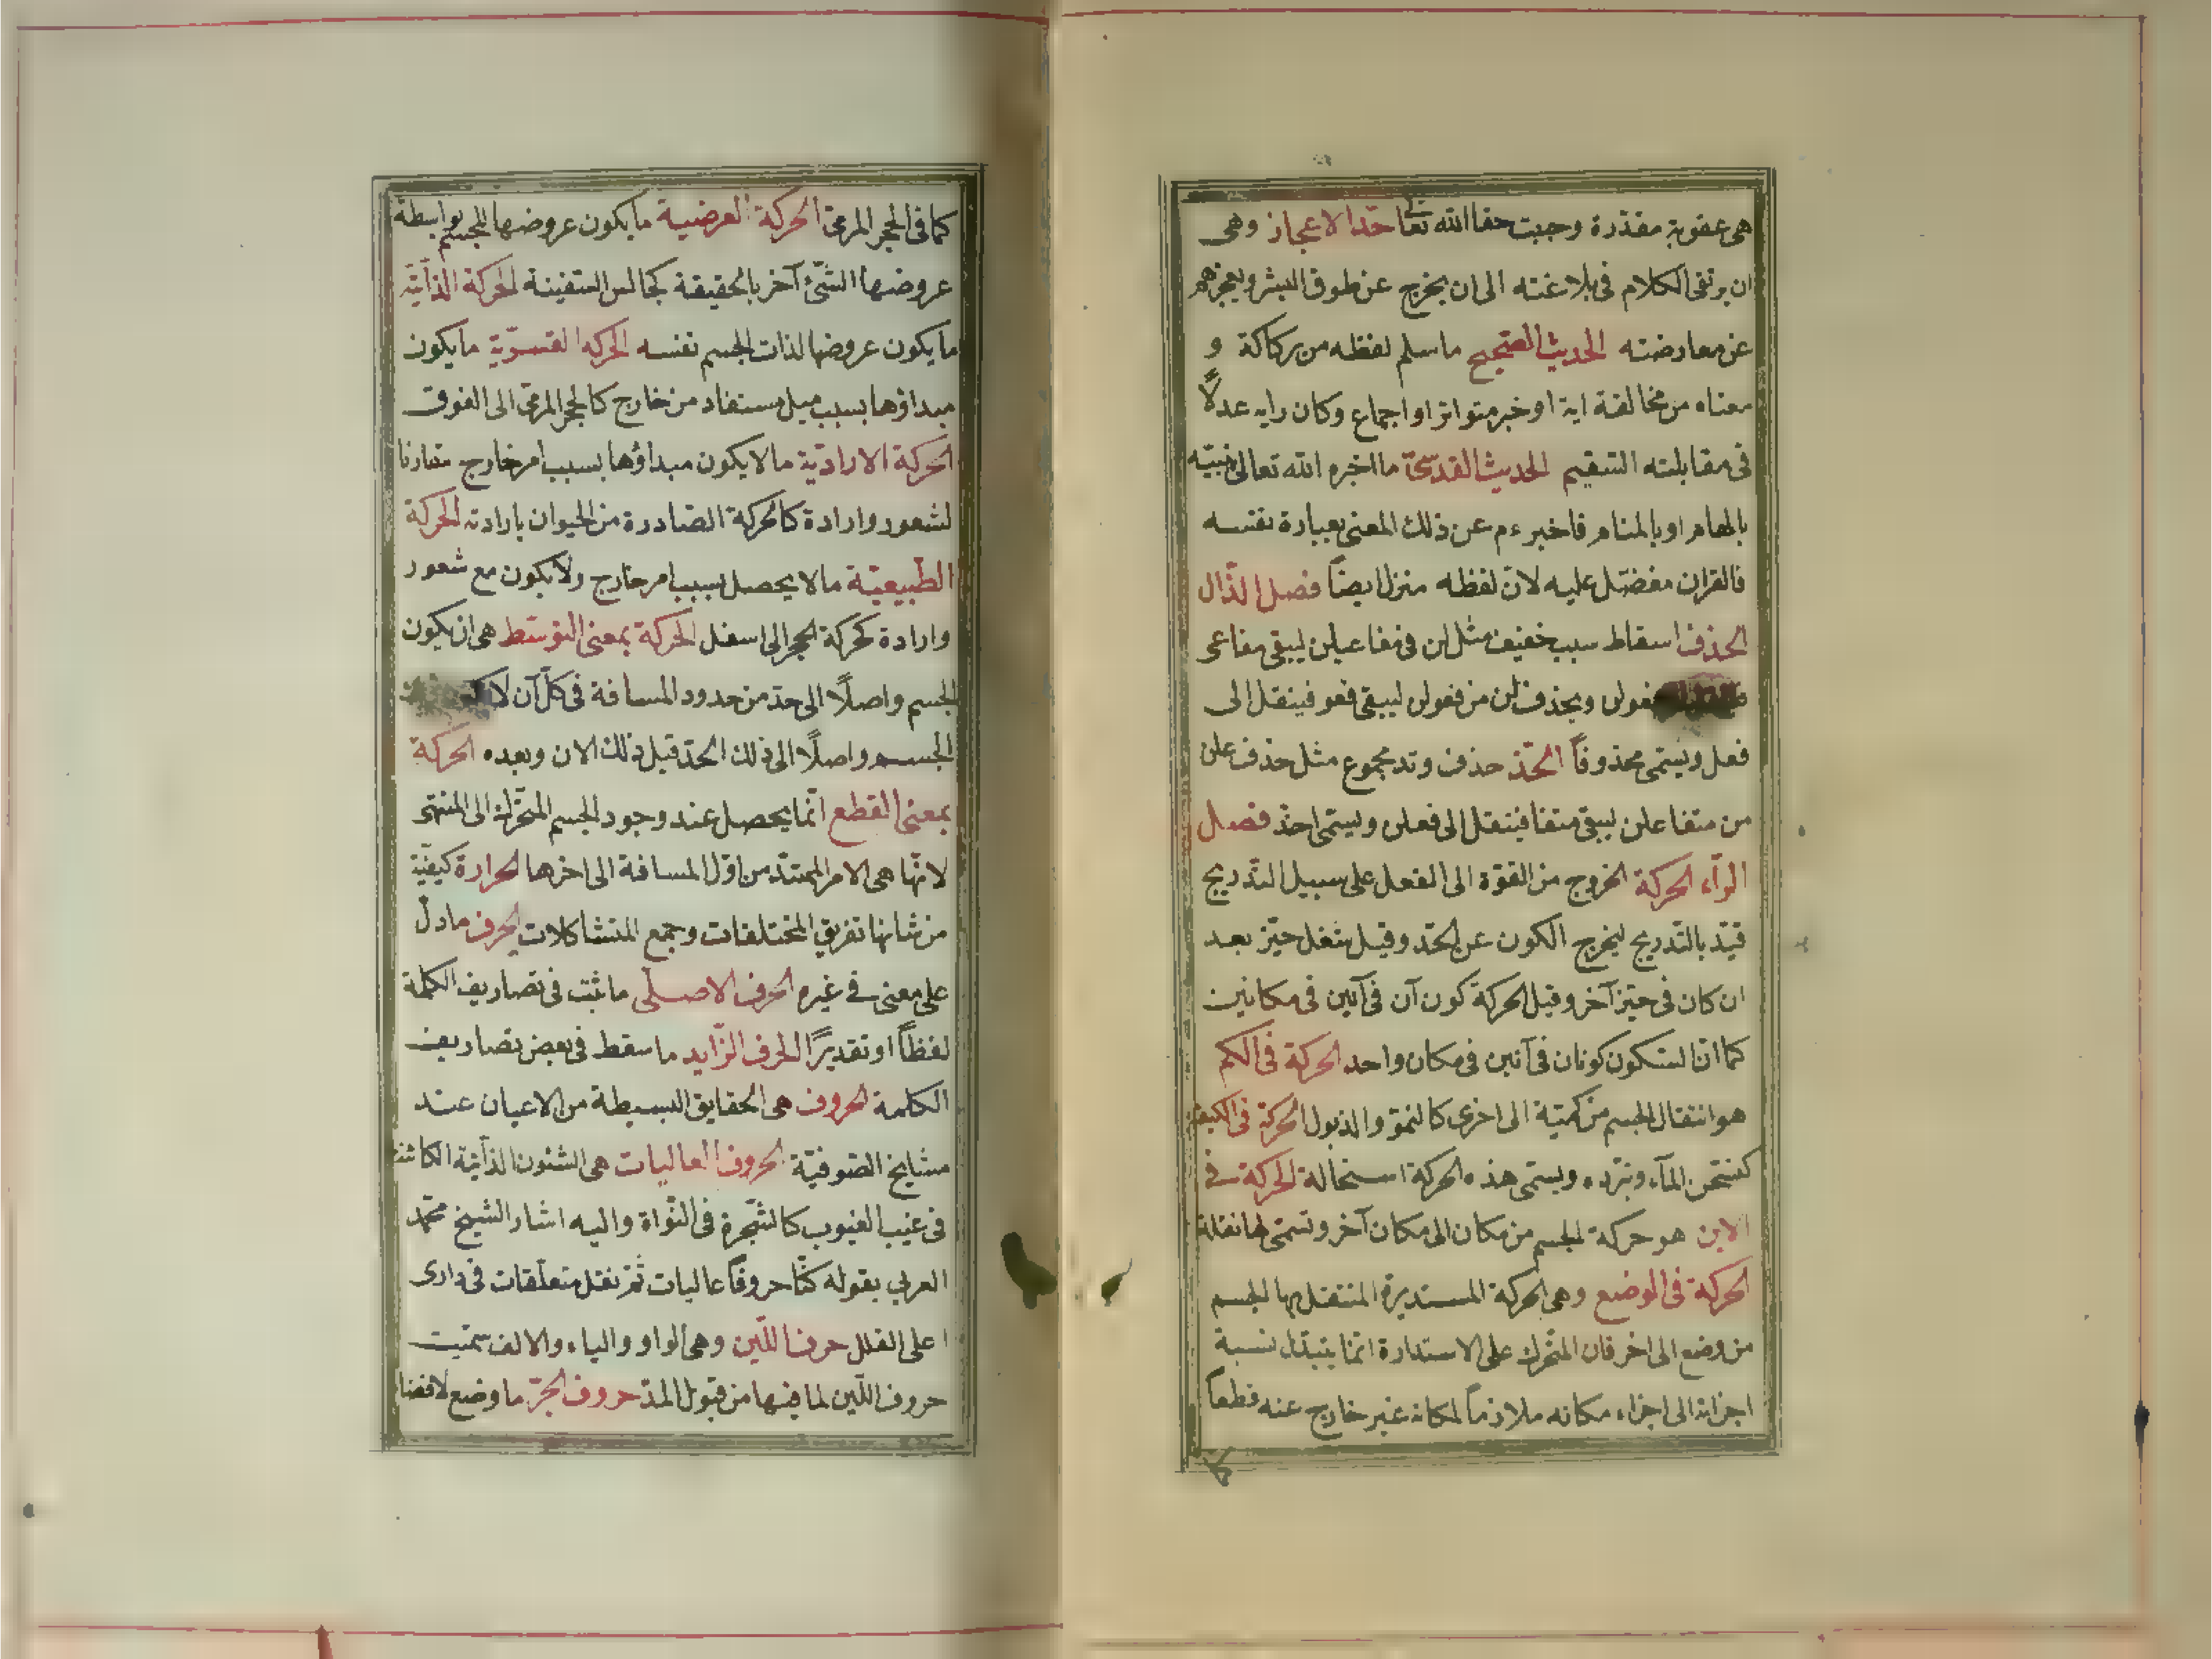 هى عقوبة مقدرة وجبت حقا الله تعالى حد الاعجاز وهى
ان يرتقى الكلام فى بلاغته الى ان يخرج عن طوق البشر ويعجزهم
عن معارضته الحديث الصحيح ما سلم لفظه من ركاكة و
معناه من مخالفة اية او خبر متواتر او اجماع وكان رايه عدلًا
فى مقابلته السقيم الحديث القدسىّ ما اخبره الله تعالى نبيّه
بالهام او بالمنام فاخبر ءم عن ذلك المعنى بعبارة نفسه
فالقران مفضّل عليه لانّ لفظه منزل ايضاً فصل الذّال
الحذف اسقاط سبب خفيف مثل لن فى مفاعيلن ليبقى مفاعى
فعولن ويحذف لن من فعولن ليبقى فعو فينقل الى
فعل ويسمّى محذوفاً الحّذ حذف وتد مجموع مثل حذف علن
من متفاعلن ليبقى متفا فينقل الى فعلن ويسمّى احذ فصل
الرّاء الحركة الخروج من القوّة الى الفعل على سبيل التّدريج
قيّد بالتّدريج ليخرج الكون عن الحّد وقيل شغل حيّز بعد
ان كان فى حيّز آخر وقيل الحركة كون آن فى آنين فى مكانين
كما انّ السّكون كونان فى آنين فى مكان واحد الحركة فى الكم
هو انتقال الجسم من كميّة الى اخرى كالنموّ والذبول الحركة فى الكيف
كتسخّن المآء وتبرّده ويسمّى هذه الحركة استحالة الحركة فى
الاين هو حركة الجسم من مكان الى مكان آخر وتسمّى لها نقلة
الحركة فى الوضع وهى الحركة المستديرة المنتقل بها الجسم
من وضع الى اخر فان المتحرّك على الاستدارة انّما يتبدّل نسبة
اجزائه الى اجزاء مكانه ملازماً لمكانه غير خارج عنه قطعاً
كما
كما فى الحجر المرمىّ الحركة العرضية ما يكون عروضها للجسم بواسطة
عروضها الشّىء آخر بالحقيقة كجالس السّفينة الحركة الذّاتيّة
ما يكون عروضها لذات الجسم نفسه الحركه القسريّة ما يكون
مبداؤها بسبب ميل مستفاد من خارج كالحجر المرمىّ الى الفوق
الحركة الاراديّة ما لا يكون مبداؤها بسبب امر خارج مقارنا
لشعور وارادة كالحركة الصّادرة من الحيوان بارادته الحركة
الطّبيعيّة ما لا يحصل بسبب امر خارج ولا يكون مع شعور
وارادة كحركة الحجر الى اسفل الحركة بمعنى التوسّط هى ان يكون
الجسم واصلًا الى حدّ من حدود المسافة فى كلّ آن لا
الجسم واصلًا الى ذلك الحدّ قبل ذلك الان وبعده الحركة
بمعنى القطع انّما يحصل عند وجود الجسم المتحرّك الى المنتهى
لانّها هى الامر الممتدّ من اوّل المسافة الى اخرها الحرارة كيفيّة
من شانها تفريق المختلفات وجمع المتشاكلات الحرف ما دلّ
على معنى فى غيره الحرف الاصلّى ما ثبت فى تصاريف الكلمة
لفظاً او تقديرًا الحرف الزّايد ما سقط فى بعض تصاريف
الكلمة الحروف هى الحقايق البسيطة من الاعيان عند
مشايخ الصّوفيّة الحروف العاليات هى الشئون الذّاتيّة الكائنة
فى غيب الغيوب كالشّجرة فى النّواة واليه اشار الشيخ محمّد
العربى بقوله كنّا حروفاً عاليات ثمّ نقل متعلّقات فى دارى
اعلى القلل حرف اللّين وهى الواو والياء والالف سمّيت
حروف اللّين لما فيها من قبول المدّ حروف الجّر ما وضع لافضاء